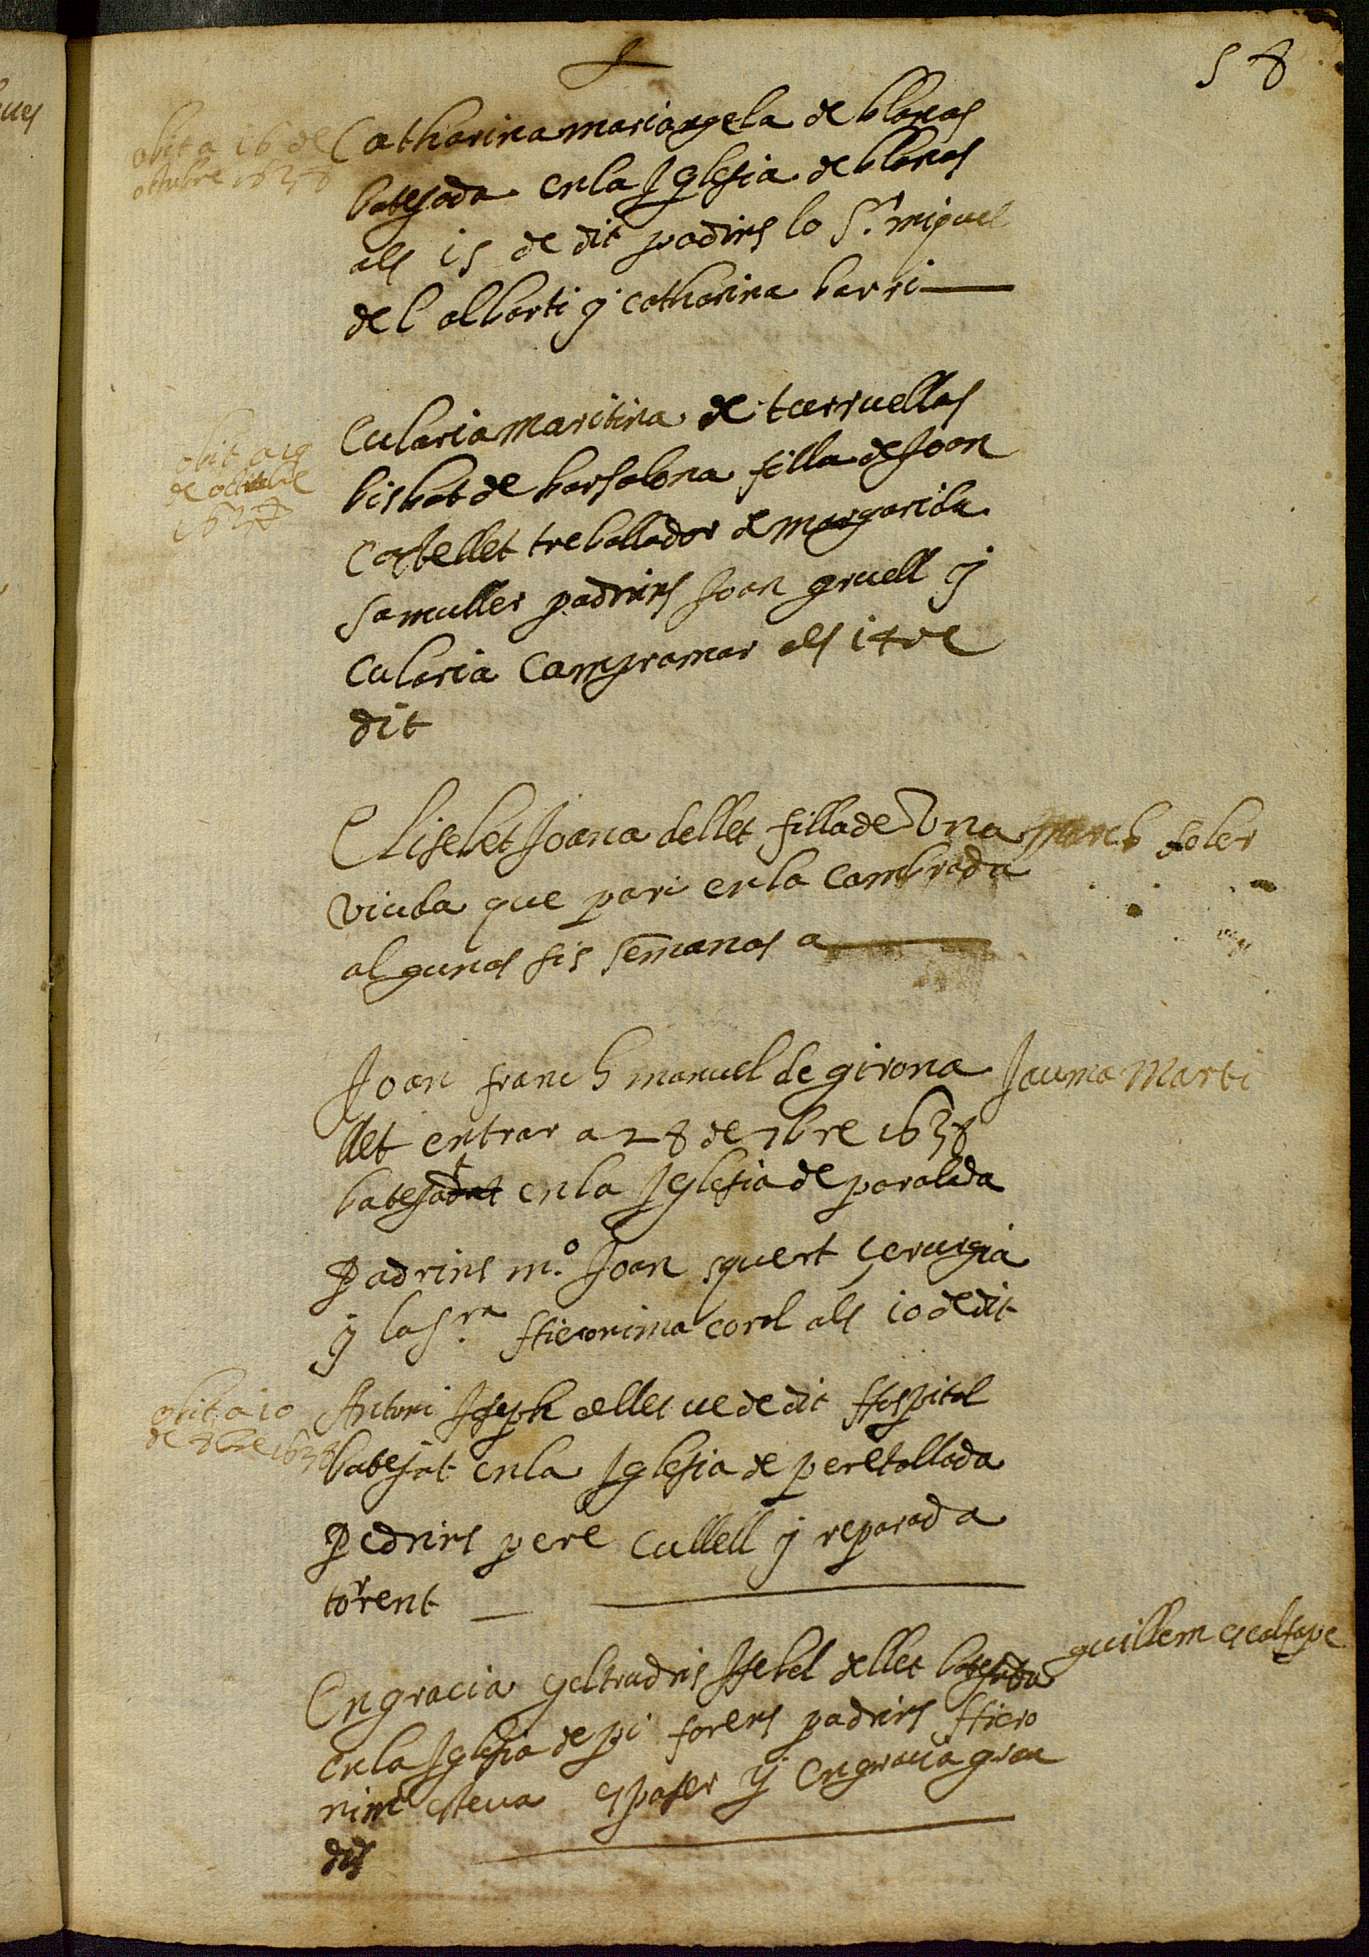 58
obit a 16 de
octubre 1638
Catharina mariangela de blanas
batejada en la Iglesia de blanas
als 15 de dit padins lo Sr. miquel
del alberti y catharina barri
obit a 19
de octubre
1638
Eularia maritina de turruellas
bisbat de barsalona filla de Joan
Castellet treballador de margarida
sa muller padrins Joan gruell y
Eularia Campramar als 14 de
dit
Elisebet Joana dellet filla de una
soler
viuda que pari en la cambrada
algunas sis semanas a
Joan franch manuel de girona
Jauma Marti
llet entrar a 28 de 7bre 1638
batejat en la Iglesia de paralada
Padrins mo. Joan squert Serurgia
y la Sra. Hieronima corol als 10 de dit
obit a 10
de 8bre 1638
Antoni Joseph de llet ve de dit Hospital
batejat en la Iglesia de peretallada
Pedrins pere Cullell y reparada
torrent
Engracia geltrudris Isebel de llet batejada
guillem escalfape
en la Iglesia de pi forens padrins Hiero
nim esteva espaser y Engracia grau
dis